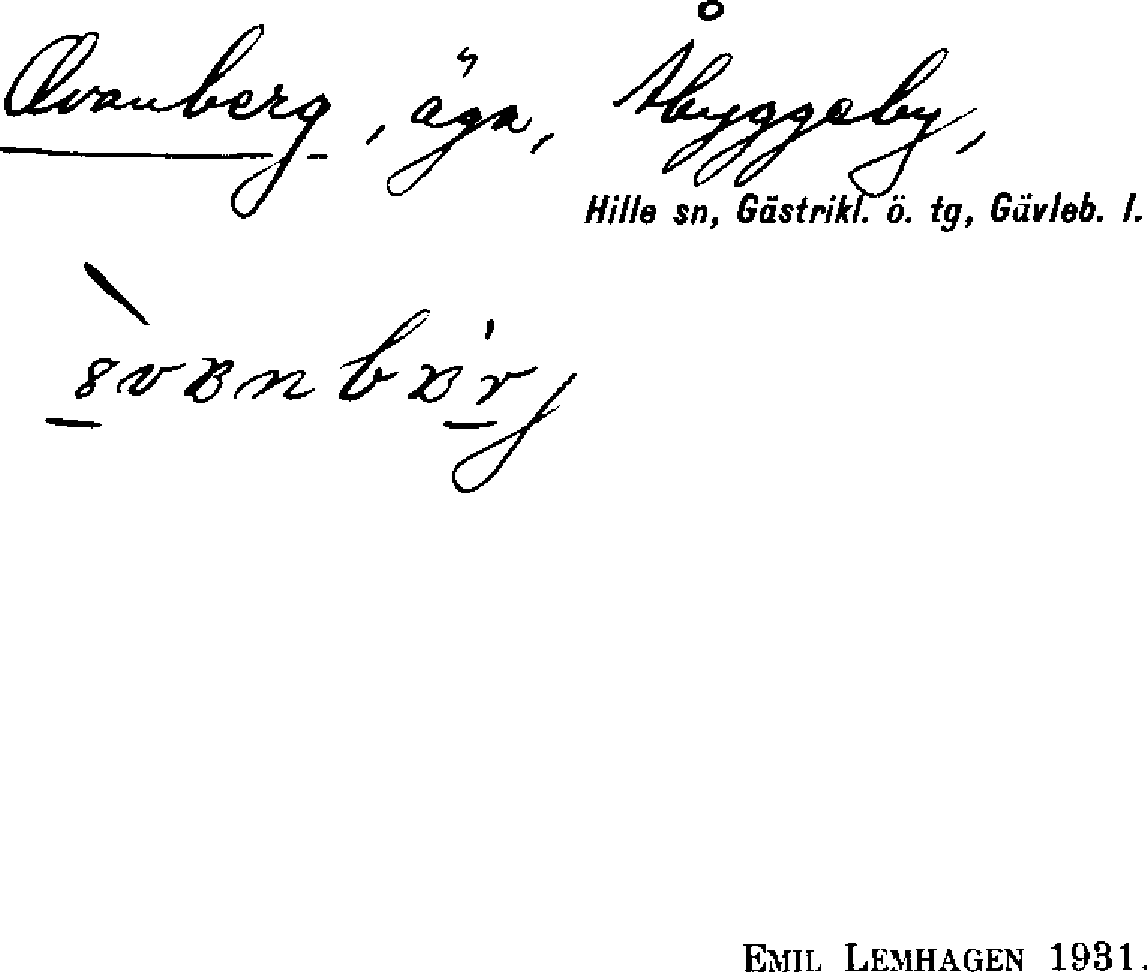 Ovanberg, äga, Åbyggeby,
Hille sn, Gästrikl. ö. tg, Gävleb. l.
EMIL LEMHAGEN 1931.